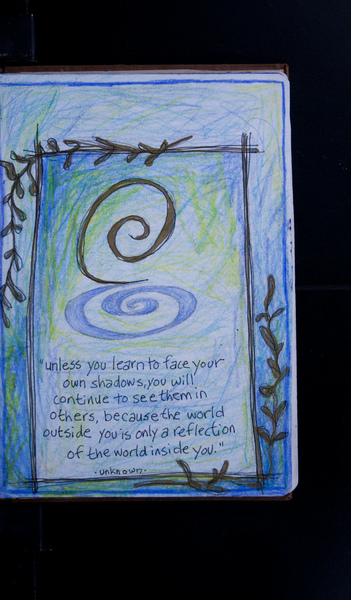 "unless you learn to face your
own shadows, you will
continue to see them in
others, because the world
outside you is only a reflection
of the world inside you."
-unknown-